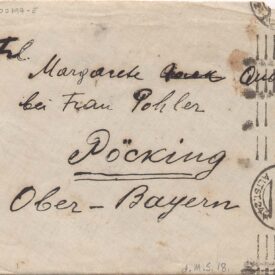 Frl.
Margarete
bei Frau Pohler
Pöcking
Ober-Bayern
J.M.S. 18.